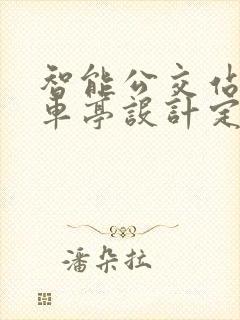 智能公交佔
車亭設計定
潘朵拉